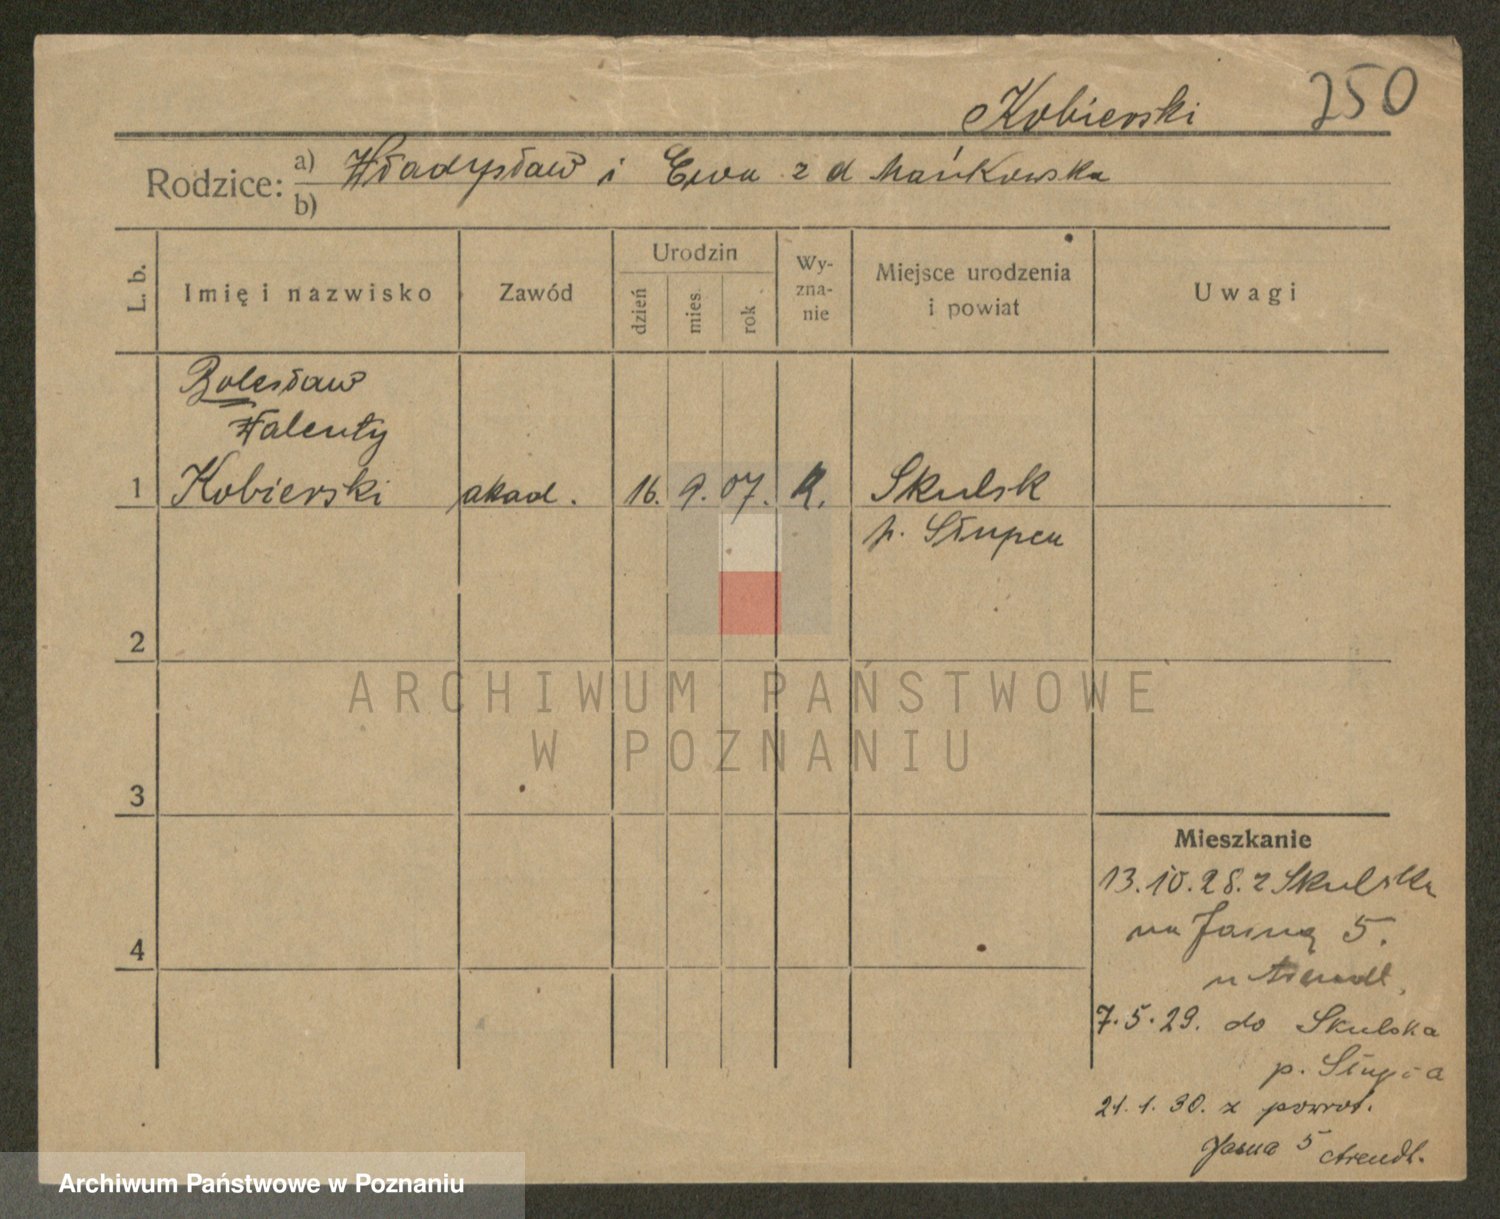 Kobierski 250
Rodzice: a) Władysław i Ewa z d Mańkowska
b)
L. b. Imię i nazwisko Zawód Urodzin dzień mies. rok Wyznanie Miejsce urodzenia i powiat Uwagi
Bolesław
Walenty
1 Kobierski akad. 16. 9. 07. R. Skulsk
p. Słupca
2
3
4
Mieszkanie
13.10.28. z Skulska
na Jasną 5.
u Arendt.
7.5.29. do Skulska
p. Słupca
21.1.30. z powrot.
Jasna 5 Arendt.
ARCHIWUM PAŃSTWOWE
W POZNANIU
Archiwum Państwowe w Poznaniu